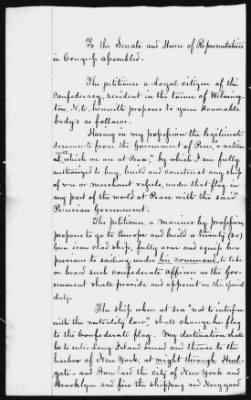 To the Senate and House of Representatives
in Congress assembled.
The petitioner a Loyal citizen of the
Confederacy, resident in the town of Wilming-
ton, N.C. herewith proposes to your Honorable
body's as follows.
Having in my profession the legitimate
documents from the Government of Peru, "a nation
with which we are at Peace," by which I am fully
authorized to buy, build and construct any ship
of war or merchant vessels, under that flag in
any part of the world at Peace with the said
Peruvian Government.
The petitioner, a mariner by profession
propons to go to Europe and build a twenty (20)
gun iron clad ship, fully arm and equip her
previous to sailing under his command, to take
on board such confederate officers as the Gov-
ernment shall provide and appoint on the special
duty.
The ship when at sea "not to interfere
with the neutrality law", shall change her flag
to the Confederate flag. My destination shall
be to enter Long Island Sound and thence to the
harbor of New York, at night through Hurl-
gate - and Bombard the city of New York and
Brooklyn and fire the shipping and Navy yard